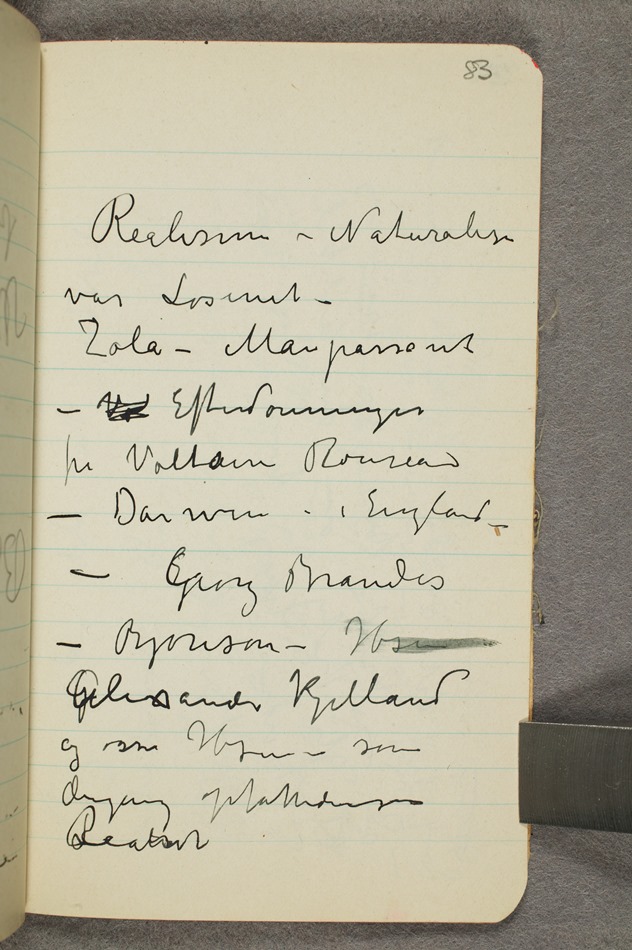 83
Realismen – Naturalism
var Losenet –
Zola – Maupassant
– Efterdønninger
fra Voltaire Rousseau
– Darwin – i England –
– Georg Brandes
– Bjørnson – Ibsen
Alexander Kjelland
og osse Ibsen – som
dengang opfattedes som
Realist